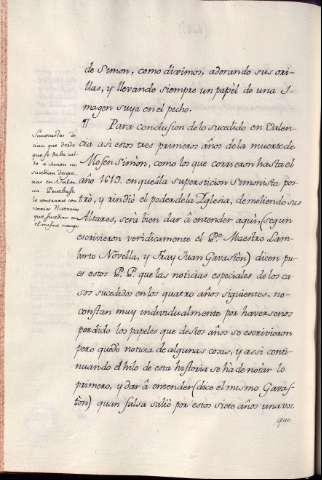 de Simon, como diximos, adornando sus ori-
llas, y llevando siempre un papel de una I-
magen suya en el pecho.
¶ Para conclusion de lo sucedido en Valen-
cia asi estos tres primeros años de la muerte de
Mosen Simon, como los que corrieron hasta el
año 1619. en que la Supersticion Simonista pos-
tró, y rindió el poder de la Iglesia, demoliendo sus
Altares, será bien dar à entender aqui, (segun
escrivieron veridicamente el P. Maestro Lam-
berto Novella, y Fray Juan Gavastón) dicen pu-
es estos P.P. que las noticias especiales de los ca-
sos sucedidos en los quatro años siguientes, no
constan muy individualmente por haversenos
perdido los papeles que destos años se escrivieron
pero quedó noticia de algunas cosas, y assi conti-
nuando el hilo de esta historia se há de notar lo
primero, y dar à entender (dice el mismo Gavas-
tón) quan falsa salió por estos siete años una voz
que